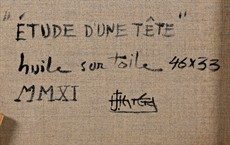 "ÉTUDE D'UNE TÊTE"
huile sur toile 46x33
MMXI